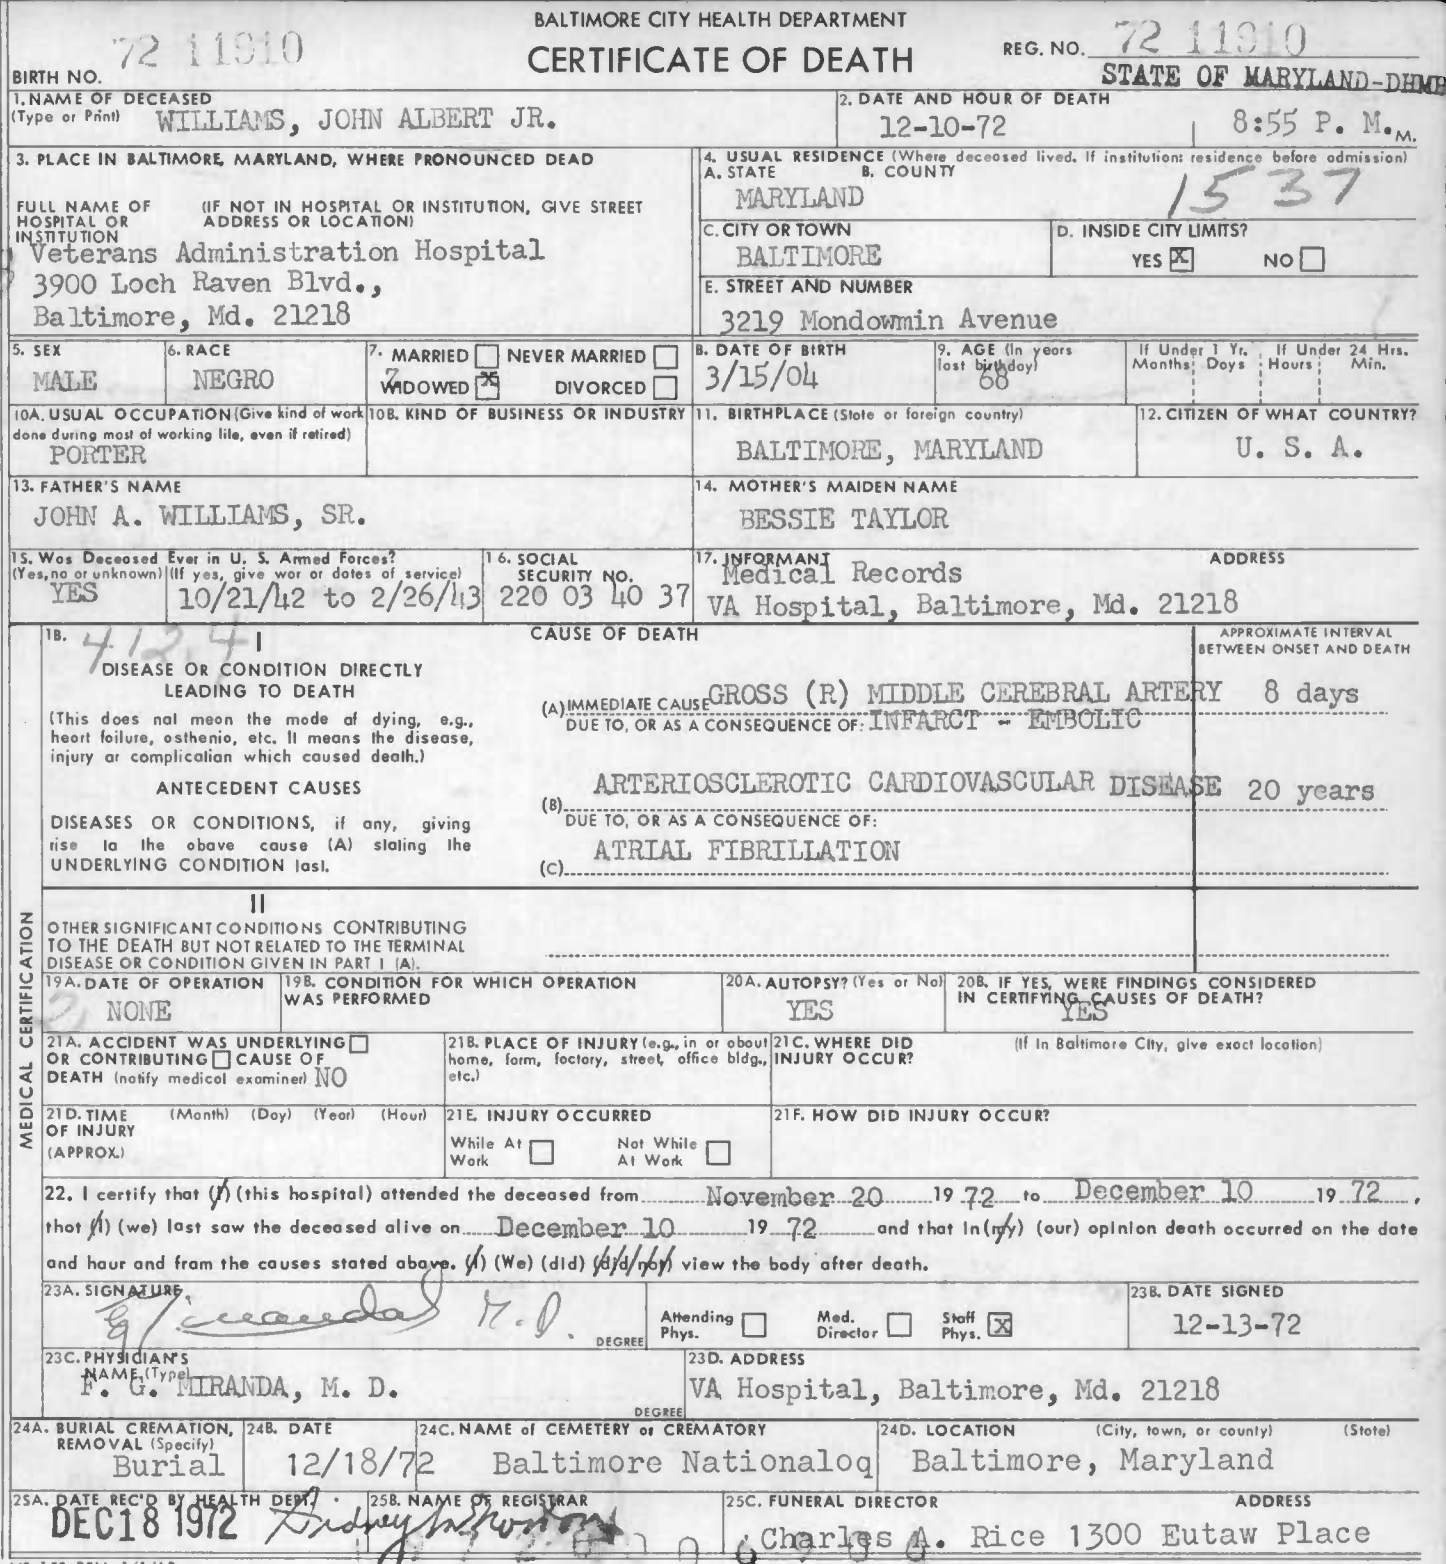 BALTIMORE CITY HEALTH DEPARTMENT
CERTIFICATE OF DEATH
72 11910
BIRTH NO.
REG. NO. 72 11910
STATE OF MARYLAND-DHMH
1. NAME OF DECEASED
(Type or Print) WILLIAMS, JOHN ALBERT JR.
2. DATE AND HOUR OF DEATH
12-10-72 8:55 P. M. M.
3. PLACE IN BALTIMORE, MARYLAND, WHERE PRONOUNCED DEAD
FULL NAME OF HOSPITAL OR INSTITUTION
(IF NOT IN HOSPITAL OR INSTITUTION, GIVE STREET ADDRESS OR LOCATION)
Veterans Administration Hospital
3900 Loch Raven Blvd.,
Baltimore, Md. 21218
4. USUAL RESIDENCE (Where deceased lived. If institution: residence before admission)
A. STATE B. COUNTY
MARYLAND 1537
C. CITY OR TOWN
BALTIMORE
D. INSIDE CITY LIMITS?
YES X NO
E. STREET AND NUMBER
3219 Mondowmin Avenue
5. SEX
MALE
6. RACE
NEGRO
7. MARRIED NEVER MARRIED
WIDOWED X DIVORCED
8. DATE OF BIRTH
3/15/04
9. AGE (In years last birthday)
68
If Under 1 Yr. If Under 24 Hrs.
Months Days Hours Min.
10A. USUAL OCCUPATION (Give kind of work done during most of working life, even if retired)
PORTER
10B. KIND OF BUSINESS OR INDUSTRY
11. BIRTHPLACE (State or foreign country)
BALTIMORE, MARYLAND
12. CITIZEN OF WHAT COUNTRY?
U. S. A.
13. FATHER'S NAME
JOHN A. WILLIAMS, SR.
14. MOTHER'S MAIDEN NAME
BESSIE TAYLOR
15. Was Deceased Ever in U. S. Armed Forces?
(Yes, no or unknown) (If yes, give war or dates of service)
YES 10/21/42 to 2/26/43
16. SOCIAL SECURITY NO.
220 03 40 37
17. INFORMANT ADDRESS
Medical Records
VA Hospital, Baltimore, Md. 21218
MEDICAL CERTIFICATION
18. 412.4 I
CAUSE OF DEATH
APPROXIMATE INTERVAL
BETWEEN ONSET AND DEATH
DISEASE OR CONDITION DIRECTLY
LEADING TO DEATH
(This does not mean the mode of dying, e.g.,
heart failure, asthenia, etc. It means the disease,
injury or complication which caused death.)
(A) IMMEDIATE CAUSE GROSS (R) MIDDLE CEREBRAL ARTERY 8 days
DUE TO, OR AS A CONSEQUENCE OF: INFARCT - EMBOLIC
ANTECEDENT CAUSES
DISEASES OR CONDITIONS, if any, giving
rise to the above cause (A) stating the
UNDERLYING CONDITION last.
(B) ARTERIOSCLEROTIC CARDIOVASCULAR DISEASE 20 years
DUE TO, OR AS A CONSEQUENCE OF:
(C) ATRIAL FIBRILLATION
II
OTHER SIGNIFICANT CONDITIONS CONTRIBUTING
TO THE DEATH BUT NOT RELATED TO THE TERMINAL
DISEASE OR CONDITION GIVEN IN PART I (A).
19A. DATE OF OPERATION
NONE
19B. CONDITION FOR WHICH OPERATION
WAS PERFORMED
20A. AUTOPSY? (Yes or No)
YES
20B. IF YES, WERE FINDINGS CONSIDERED
IN CERTIFYING CAUSES OF DEATH?
YES
21A. ACCIDENT WAS UNDERLYING
OR CONTRIBUTING CAUSE OF
DEATH (notify medical examiner) NO
21B. PLACE OF INJURY (e.g., in or about
home, farm, factory, street, office bldg.,
etc.)
21C. WHERE DID (If In Baltimore City, give exact location)
INJURY OCCUR?
21D. TIME (Month) (Day) (Year) (Hour)
OF INJURY
(APPROX.)
21E. INJURY OCCURRED
While At Work Not While At Work
21F. HOW DID INJURY OCCUR?
22. I certify that (I) (this hospital) attended the deceased from November 20 19 72 to December 10 19 72,
that (I) (we) last saw the deceased alive on December 10 19 72 and that in (my) (our) opinion death occurred on the date
and hour and from the causes stated above. (I) (We) (did) (did not) view the body after death.
23A. SIGNATURE
M.D. DEGREE
Attending Phys. Med. Director Staff Phys. X
23B. DATE SIGNED
12-13-72
23C. PHYSICIAN'S
NAME (Type)
F. G. MIRANDA, M. D. DEGREE
23D. ADDRESS
VA Hospital, Baltimore, Md. 21218
24A. BURIAL CREMATION,
REMOVAL (Specify)
Burial
24B. DATE
12/18/72
24C. NAME of CEMETERY or CREMATORY
Baltimore Nationaloq
24D. LOCATION (City, town, or county) (State)
Baltimore, Maryland
25A. DATE REC'D BY HEALTH DEPT.
DEC 18 1972
25B. NAME OF REGISTRAR
25C. FUNERAL DIRECTOR ADDRESS
Charles A. Rice 1300 Eutaw Place